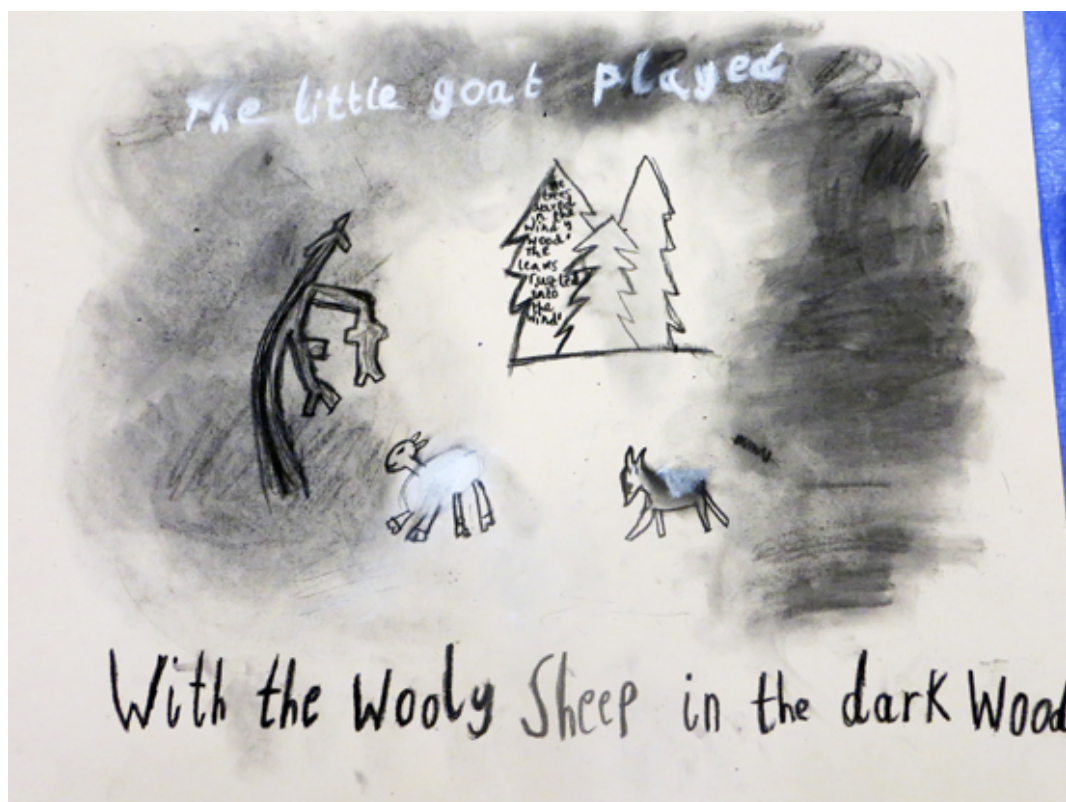 The little goat played
the
trees
in the
windy
wood'
the
leavs
into
the
wind'
With the Wooly Sheep in the dark Wood